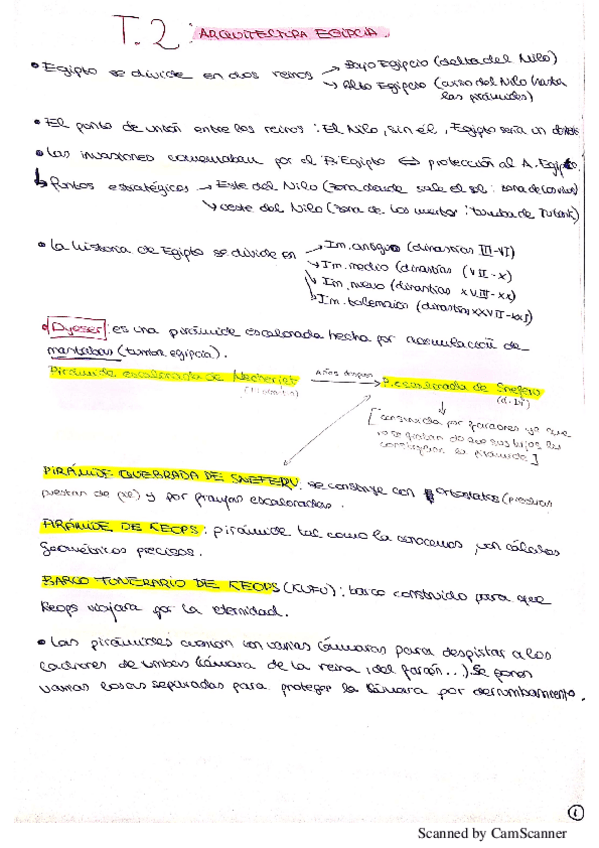 T.2: ARQUITECTURA EGIPCIA.
• Egipto se divide en dos reinos → Bajo Egipcio (delta del Nilo)
→ Alto Egipcio (curso del Nilo hasta
las pirámides)
• El punto de unión entre los reinos: El Nilo, sin él, Egipto sería un
• Las invasiones comenzaban por el B. Egipto ⇔ protección al A. Egipto.
↳ Puntos estratégicos → Este del Nilo (zona donde sale el sol: zona de los vivos)
↘ oeste del Nilo (zona de los muertos: tumba de Tutank)
• La historia de Egipto se divide en → Im. antiguo (dinastías III-VI)
→ Im. medio (dinastías (VII-X)
→ Im. nuevo (dinastías XVIII-XX)
→ Im. tolemaico (dinastías XXVII-XXI)
• Dyeser: es una pirámide escalonada hecha por acumulación de
mastabas (tumba egipcia).
Pirámide escalonada de Necherjet Años después → P. escalonada de Snefru
(d. IV)
[construida por faraones ya que
no se fiaban de que sus hijos les
construyeran la pirámide]
PIRÁMIDE QUEBRADA DE SNEFERU: se construye con ortostatos (piedras
puestas de pie) y por franjas escalonadas.
PIRÁMIDE DE KEOPS: pirámide tal como la conocemos, con cálculos
geométricos precisos.
BARCO FUNERARIO DE KEOPS (KUFU): barco construido para que
Keops viajara por la eternidad.
• Las pirámides cuentan con varias cámaras para despistar a los
ladrones de tumbas (cámara de la reina, del faraón...). Se ponen
varias losas separadas para proteger la cámara por derrumbamiento.
1
Scanned by CamScanner